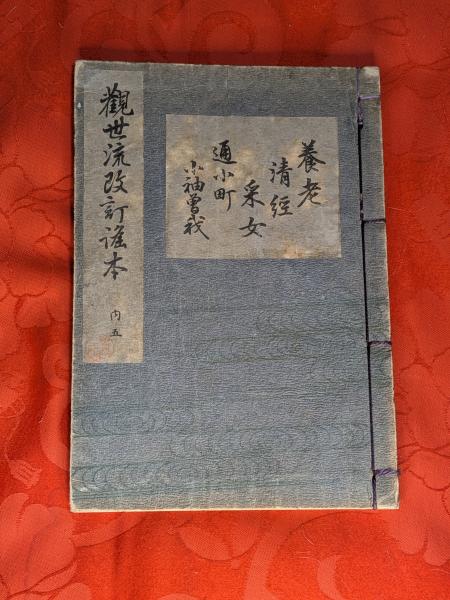 養老
清經
采女
通小町
小袖曽我
觀世流改訂謠本
内五